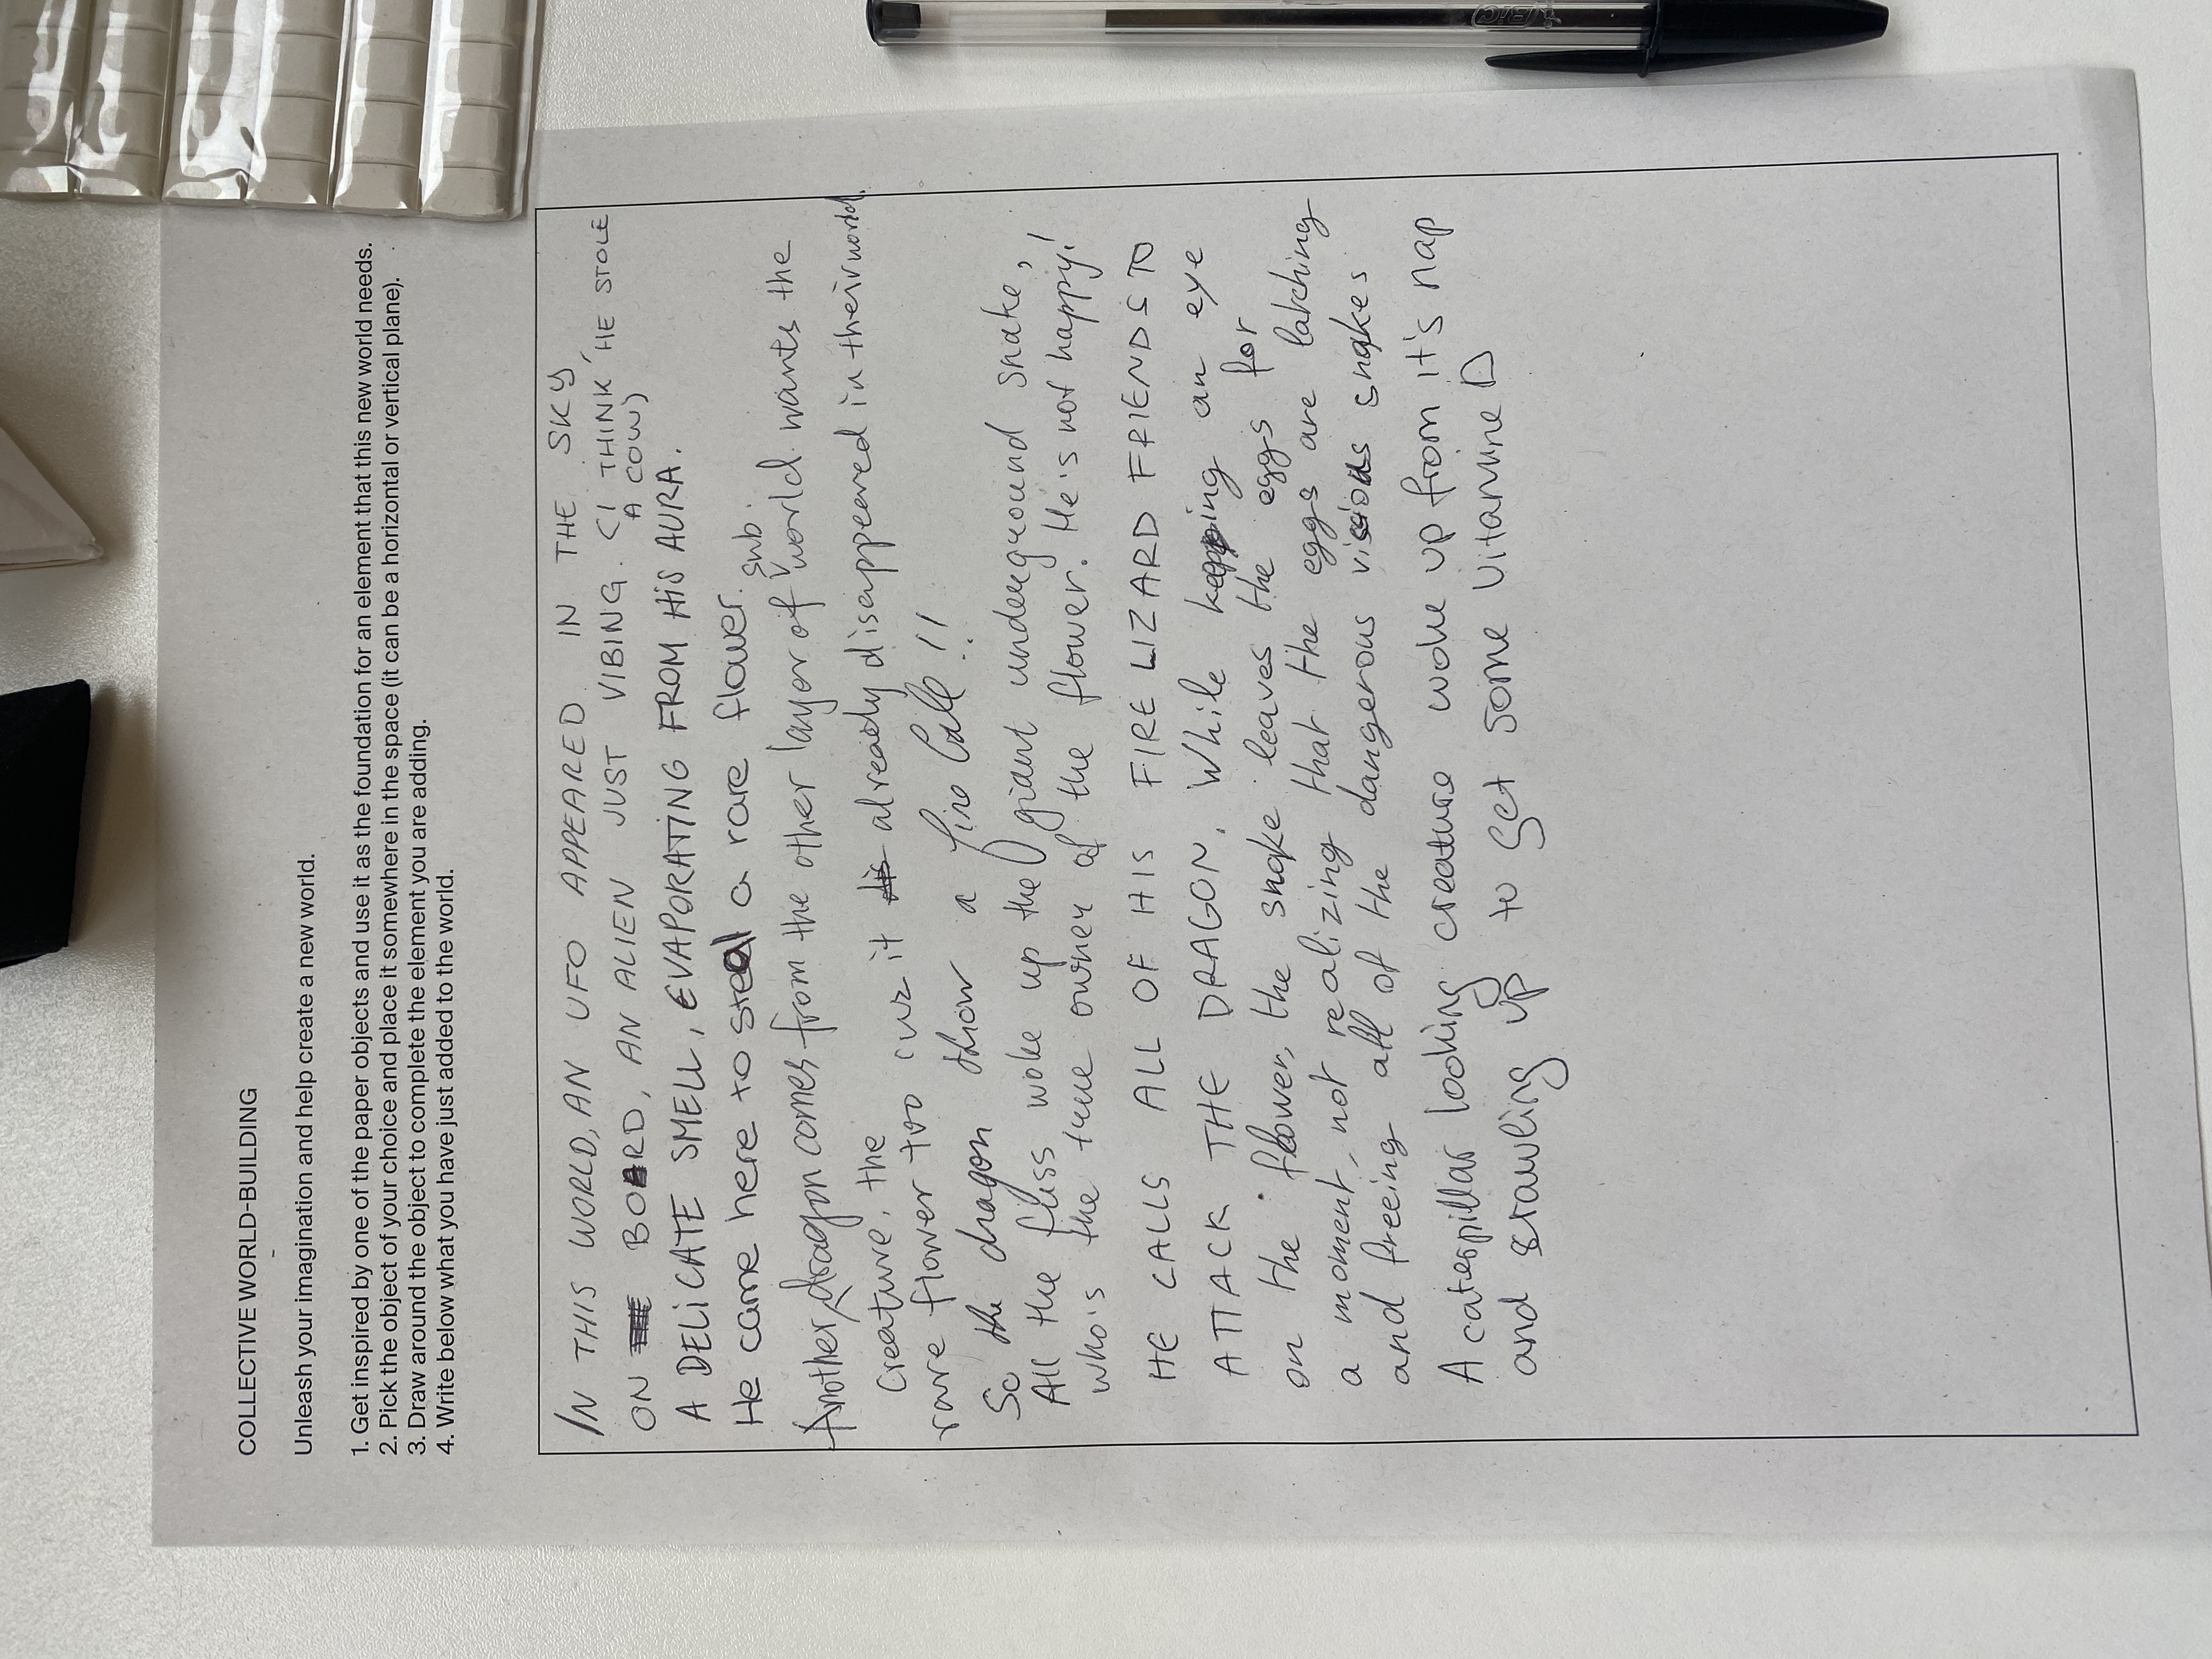 COLLECTIVE WORLD-BUILDING
Unleash your imagination and help create a new world.
1. Get inspired by one of the paper objects and use it as the foundation for an element that this new world needs.
2. Pick the object of your choice and place it somewhere in the space (it can be a horizontal or vertical plane).
3. Draw around the object to complete the element you are adding.
4. Write below what you have just added to the world.
IN THIS WORLD, AN UFO APPEARED IN THE SKY,
ON BOARD, AN ALIEN JUST VIBING. (I THINK HE STOLE
A COW)
A DELiCATE SMELL, EVAPORATING FROM HiS AURA.
He came here to steal a rare flower.
Another dragon comes from the other layer of sub world wants the
creature, the
rare flower too cuz it already disappeared in their world.
So the dragon throw a fire ball!!
All the fuss woke up the giant underground snake,
who's the true owner of the flower. He's not happy!
HE CALLS ALL OF HIS FIRE LIZARD FRIENDS TO
ATTACK THE DRAGON. While keeping an eye
on the flower, the snake leaves the eggs for
a moment, not realizing that the eggs are latching
and freeing all of the dangerous vicious snakes
A caterpillar looking creature woke up from it's nap
and scrawling up to get some Vitamine D
BIC